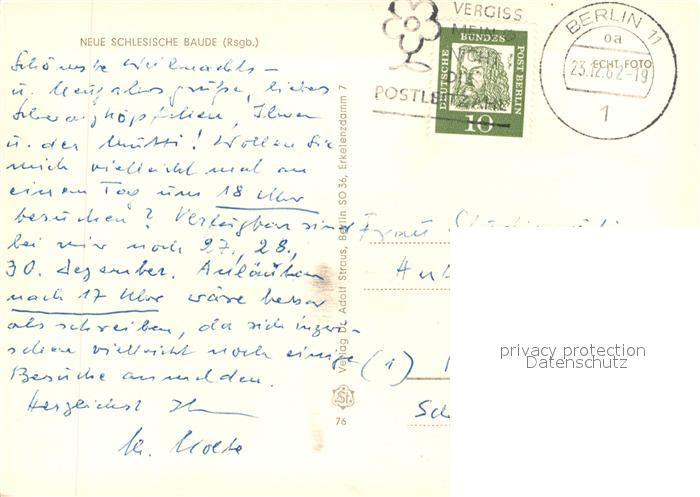 NEUE SCHLESISCHE BAUDE (Rsgb.)
Schönste Weihnachts-
u. Neujahrsgrüße, liebes
Ihnen
u. der Mutti! Wollen Sie
mich vielleicht mal an
einem Tag um 18 Uhr
besuchen? Verfügbar sind
bei mir noch 27., 28.,
30. Dezember. Anläuten
nach 17 Uhr wäre besser
als schreiben, da sich inzwi-
schen vielleicht noch einige
Besuche anmelden.
Herzlichst Ihr
Verlag Dr. Adolf Straus, Berlin SO 36, Erkelenzdamm 7
St
76
VERGISS
MEIN
NICHT
DIE
POSTLEITZAHL
DEUTSCHE BUNDESPOST BERLIN
10
BERLIN 11
oa
23.12.62-19
1
ECHT FOTO
Frau
(1)
privacy protection
Datenschutz